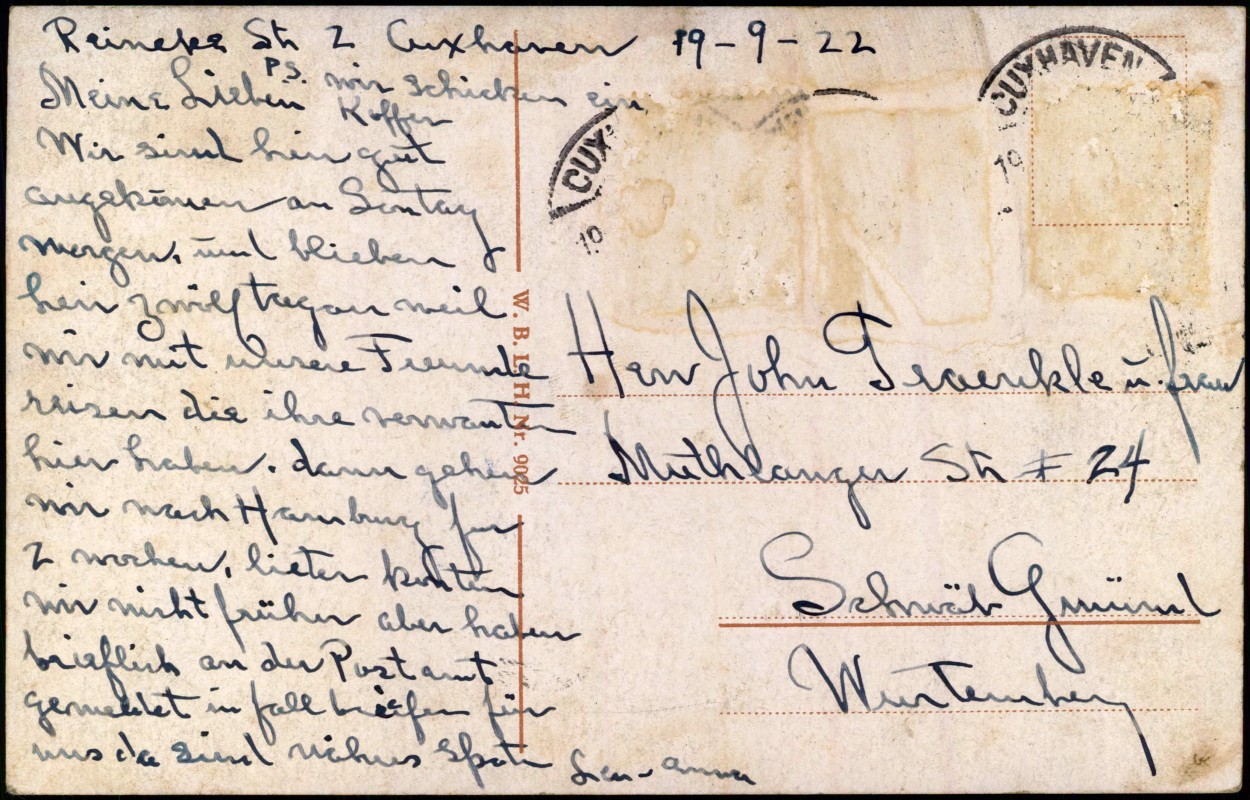 Reineke Str 2 Cuxhaven 19-9-22
Meine Lieben
P.S. wir schicken ein
Koffer
Wir sind hier gut
angekomen am Sontag
morgen, und blieben
hier zwölf tagen weil
wir mit unsere Freunde
reisen die ihre verwanten
hier haben. dann gehen
wir nach Hamburg fur
2 wochen, konten
wir nicht früher aber haben
brieflich an der Postamt
gemeldet in fall briefen für
uns da sind
Anna
W. B. L. H. Nr. 9025
CUXHAVEN
CUX
19
Herr John Traenkle u. frau
Muthlanger Str # 24
Schwäb Gmünd
Wurtemberg